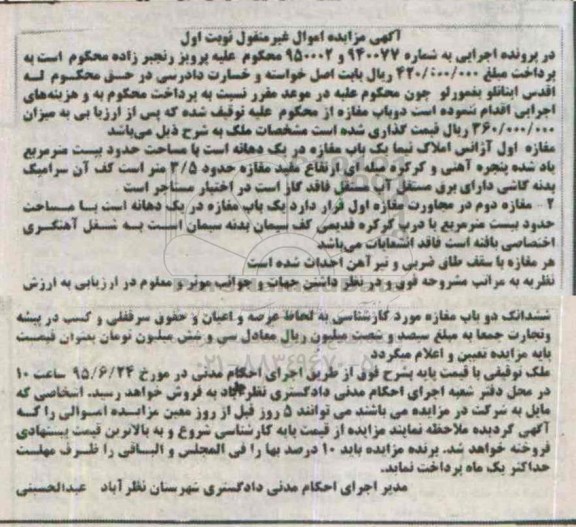 آگهی مزایده اموال غیرمنقول نوبت اول
در پرونده اجرایی به شماره ۹۴۰۰۷۷ و ۹۵۰۰۰۲ محکوم علیه پرویز رنجبر زاده محکوم است به
پرداخت مبلغ ۴۲۰/۰۰۰/۰۰۰ ریال بابت اصل خواسته و خسارت دادرسی در حق محکوم له
اقدس اینانلو یغمورلو چون محکوم علیه در موعد مقرر نسبت به پرداخت محکوم به و هزینه‌های
اجرایی اقدام ننموده است دوباب مغازه از محکوم علیه توقیف شده که پس از ارزیا بی به میزان
۳۶۰/۰۰۰/۰۰۰ ریال قیمت گذاری شده است مشخصات ملک به شرح ذیل می‌باشد
مغازه اول آژانس املاک نیما یک باب مغازه در یک دهانه است با مساحت حدود بیست مترمربع
یاد شده پنجره آهنی و کرکره میله ای ارتفاع مفید مغازه حدود ۳/۵ متر است کف آن سرامیک
بدنه کاشی دارای برق مستقل آب مستقل فاقد گاز است در اختیار مستاجر است
۲- مغازه دوم در مجاورت مغازه اول قرار دارد یک باب مغازه در یک دهانه است با مساحت
حدود بیست مترمربع با درب کرکره قدیمی کف سیمان بدنه سیمان است به شغل آهنگری
اختصاصی یافته است فاقد انشعابات می‌باشد
هر مغازه با سقف طاق ضربی و تیرآهن احداث شده است
نظریه به مراتب مشروحه فوق و در نظر داشتن جهات و جوانب موثر و معلوم در ارزیابی به ارزش
ششدانگ دو باب مغازه مورد کارشناسی به لحاظ عرصه و اعیان و حقوق سرقفلی و کسب در پیشه
وتجارت جمعا به مبلغ سیصد و شصت میلیون ریال معادل سی و شش میلیون تومان بعنوان قیمت
پایه مزایده تعیین و اعلام میگردد
ملک توقیفی با قیمت پایه بشرح فوق از طریق اجرای احکام مدنی در مورخ ۹۵/۶/۲۴ ساعت ۱۰
در محل دفتر شعبه اجرای احکام مدنی دادگستری نظرآباد به فروش خواهد رسید. اشخاصی که
مایل به شرکت در مزایده می باشند می توانند ۵ روز قبل از روز معین مزایده اموالی را که
آگهی گردیده ملاحظه نمایند مزایده از قیمت پایه کارشناسی شروع و به بالاترین قیمت پیشنهادی
فروخته خواهد شد. برنده مزایده باید ۱۰ درصد بها را فی المجلس و الباقی را ظرف مهلت
حداکثر یک ماه پرداخت نماید.
مدیر اجرای احکام مدنی دادگستری شهرستان نظرآباد عبدالحسینی